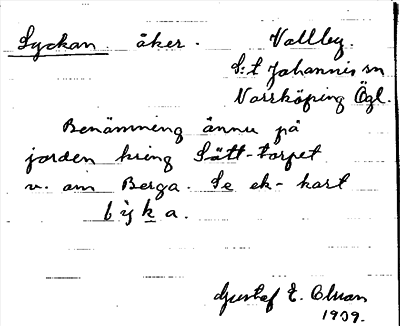 Lyckan. åker. Vallby.
S:t Johannis sn
Norrköping Ögl.
Benämning ännu på
jorden kring Sätt-torpet
v. om Berga. Se ek-kart
lyka.
Gustaf E.
1939.